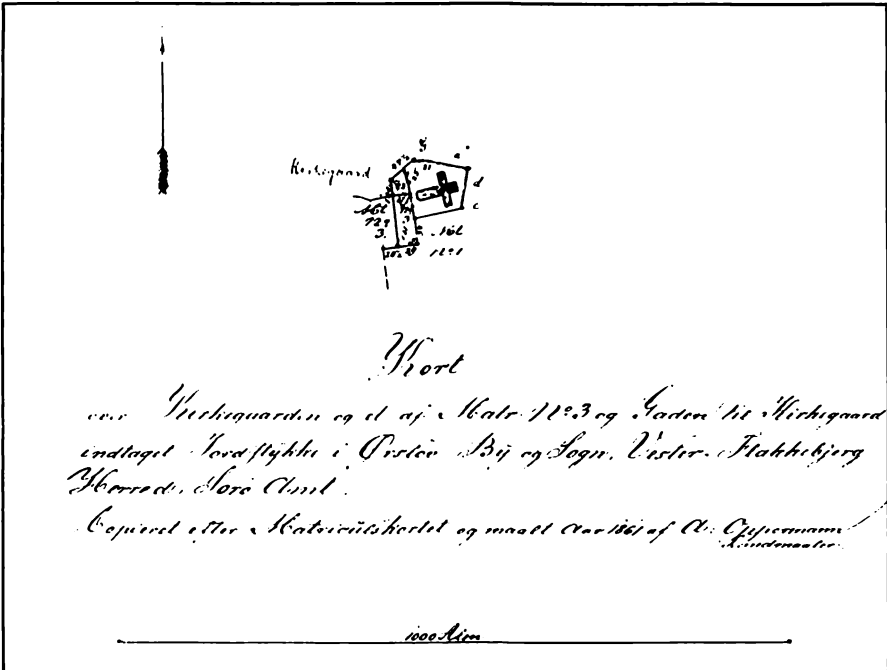 Kirkegaard
g
a
d
c
Mtl
N° 3.
Mtl
N° 1
Kort
over Kirkegaarden og et af Matr. N° 3 og Gaden til Kirkegaard
indtaget Jordstykke i Ørslev By og Sogn, Vester-Flakkebjerg
Herred, Sorø Amt.
Copieret efter Matriculskortet og maalt Aar 1861 af A. Oppermann
Landmaaler
1000 Alen